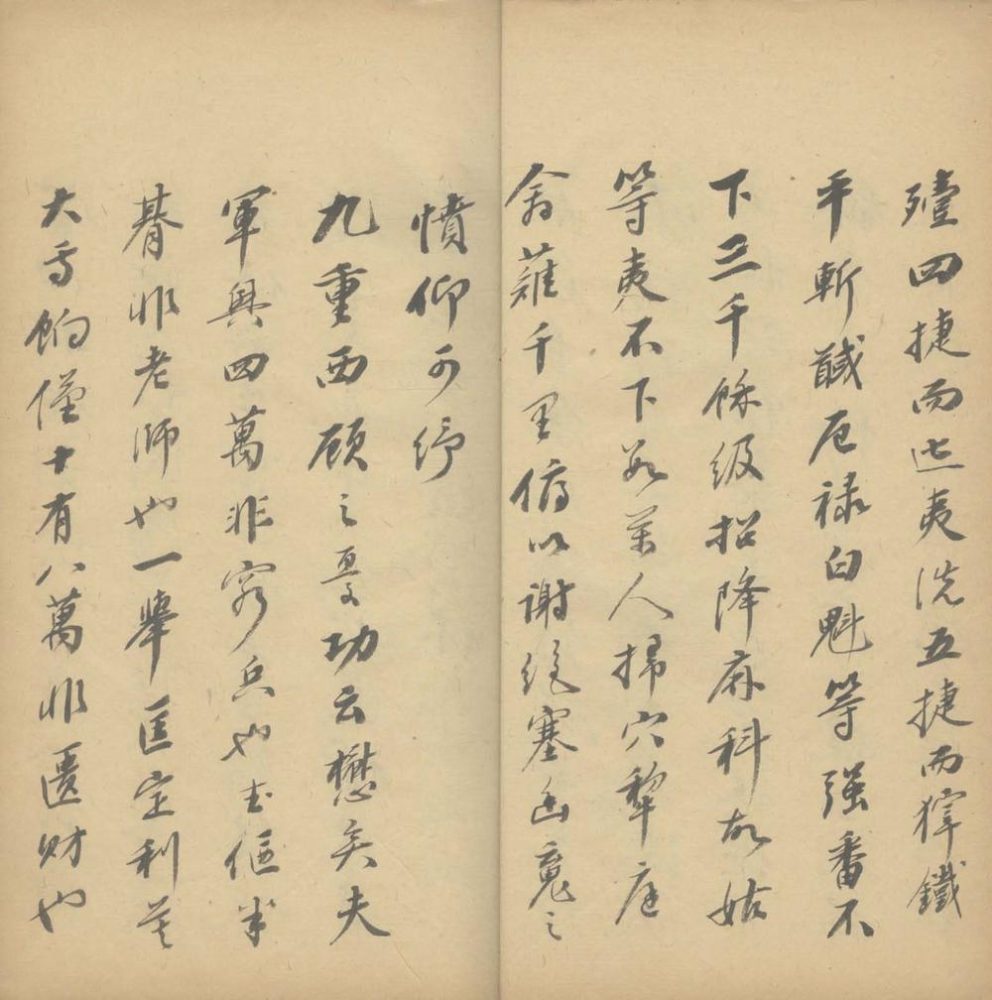 殪四捷而迤夷洗五捷而獐鐵
平斬馘厄禄白魁等强番不
下三千餘级招降麻科於姑
等夷不下數萬人掃穴犂庭
禽薙千里俯以謝絶塞幽寃之
憤仰可紓
九重西顧之憂功云懋矣夫
軍興四萬非窮兵也武傴半
朞非老師也一舉匡定利莫
大焉餉僅十有八萬非匱财也